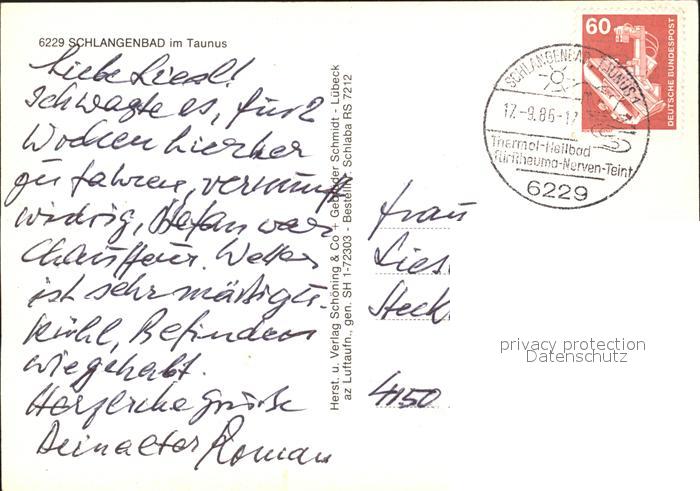 6229 SCHLANGENBAD im Taunus
Liebe Liesl!
Ich wagte es, für 2
Wochen hierher
zu fahren, vernunft
widrig, Stefan war
Chauffeur. Wetter
ist sehr mäßig u.
kühl, Befinden
wie gehabt.
Herzliche Grüße
Dein alter Roman
Herst. u. Verlag Schöning & Co + Gebrüder Schmidt - Lübeck
az Luftaufn., gen. SH 1-72303 - Bestellnr. Schlaba RS 7212
60
DEUTSCHE BUNDESPOST
SCHLANGENBAD, TAUNUS 1
17.-9.86-17
Thermal-Heilbad
für Rheuma-Nerven-Teint
6229
Frau
Lies
Heck
4150
privacy protection
Datenschutz